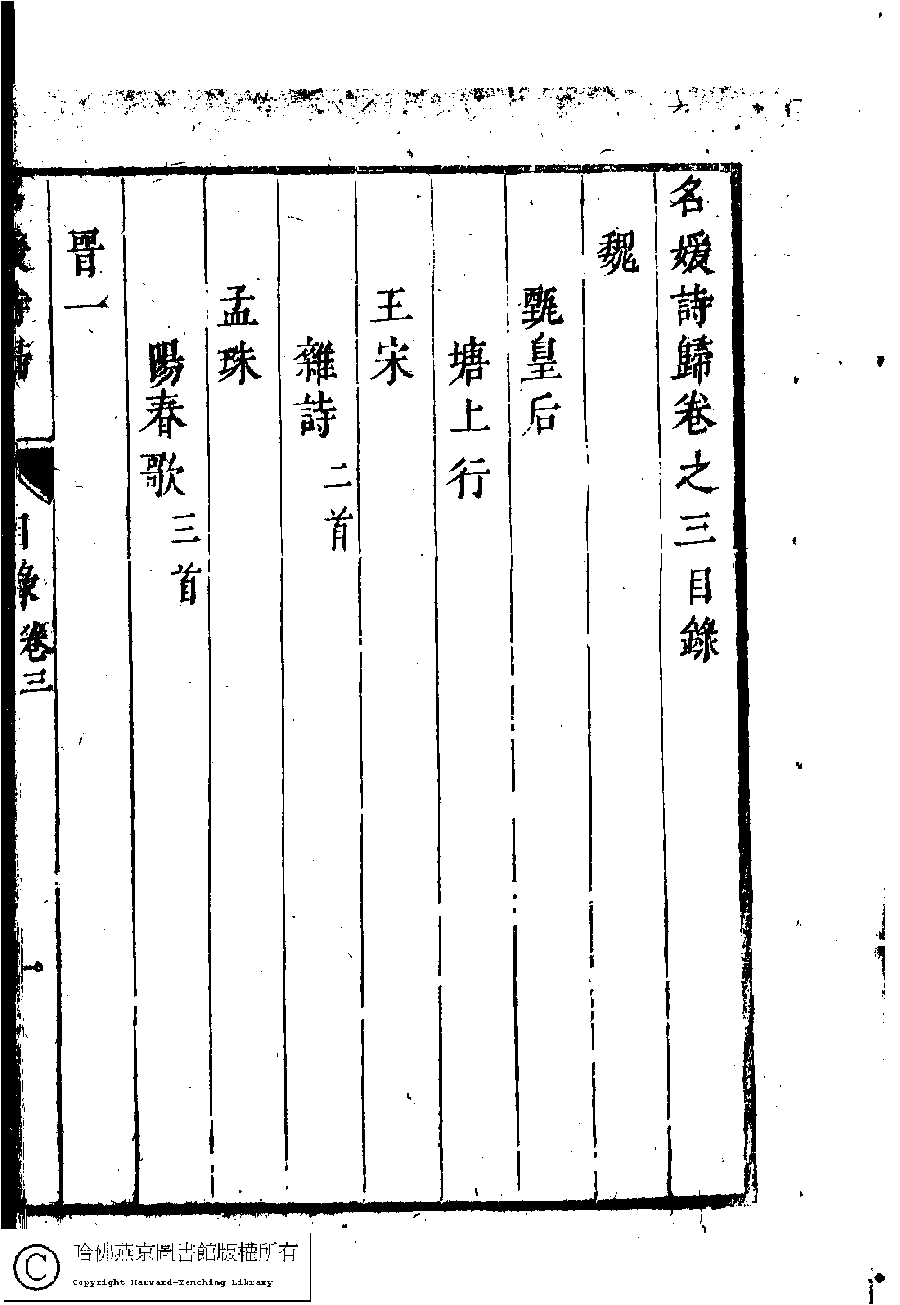 名媛詩歸卷之三目錄
魏
甄皇后
塘上行
王宋
雜詩 二首
孟珠
陽春歌 三首
晉一
目錄卷三
哈佛燕京圖書館版權所有
Copyright Harvard-Yenching Library